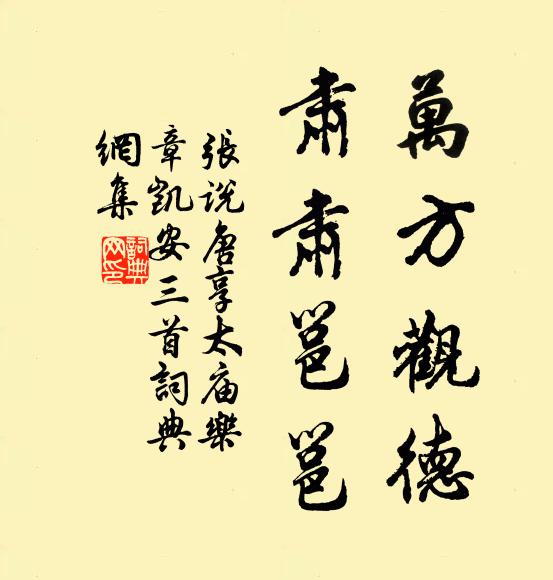 萬方觀德
肅肅邕邕
張說唐享太廟樂
章凱安三首詞典
網集
詞典網印